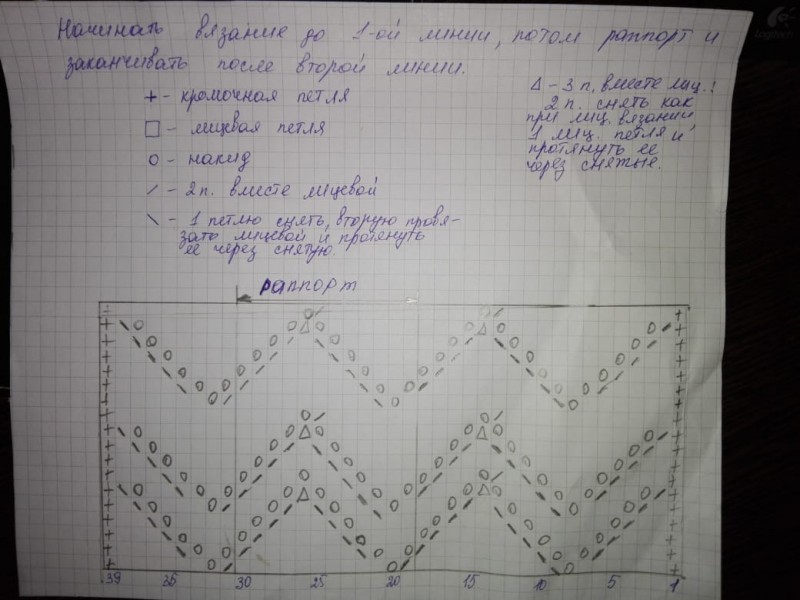 Начинать вязание до 1-ой линии, потом раппорт и
заканчивать после второй линии.
+ - кромочная петля
□ - лицевая петля
о - накид
/ - 2 п. вместе лицевой
\ - 1 петлю снять, вторую провя-
зать лицевой и протянуть
её через снятую.
Δ - 3 п. вместе лиц.:
2 п. снять как
при лиц. вязании,
1 лиц. петля и
протянуть её
через снятые.
раппорт
39 35 30 25 20 15 10 5 1
Logitech